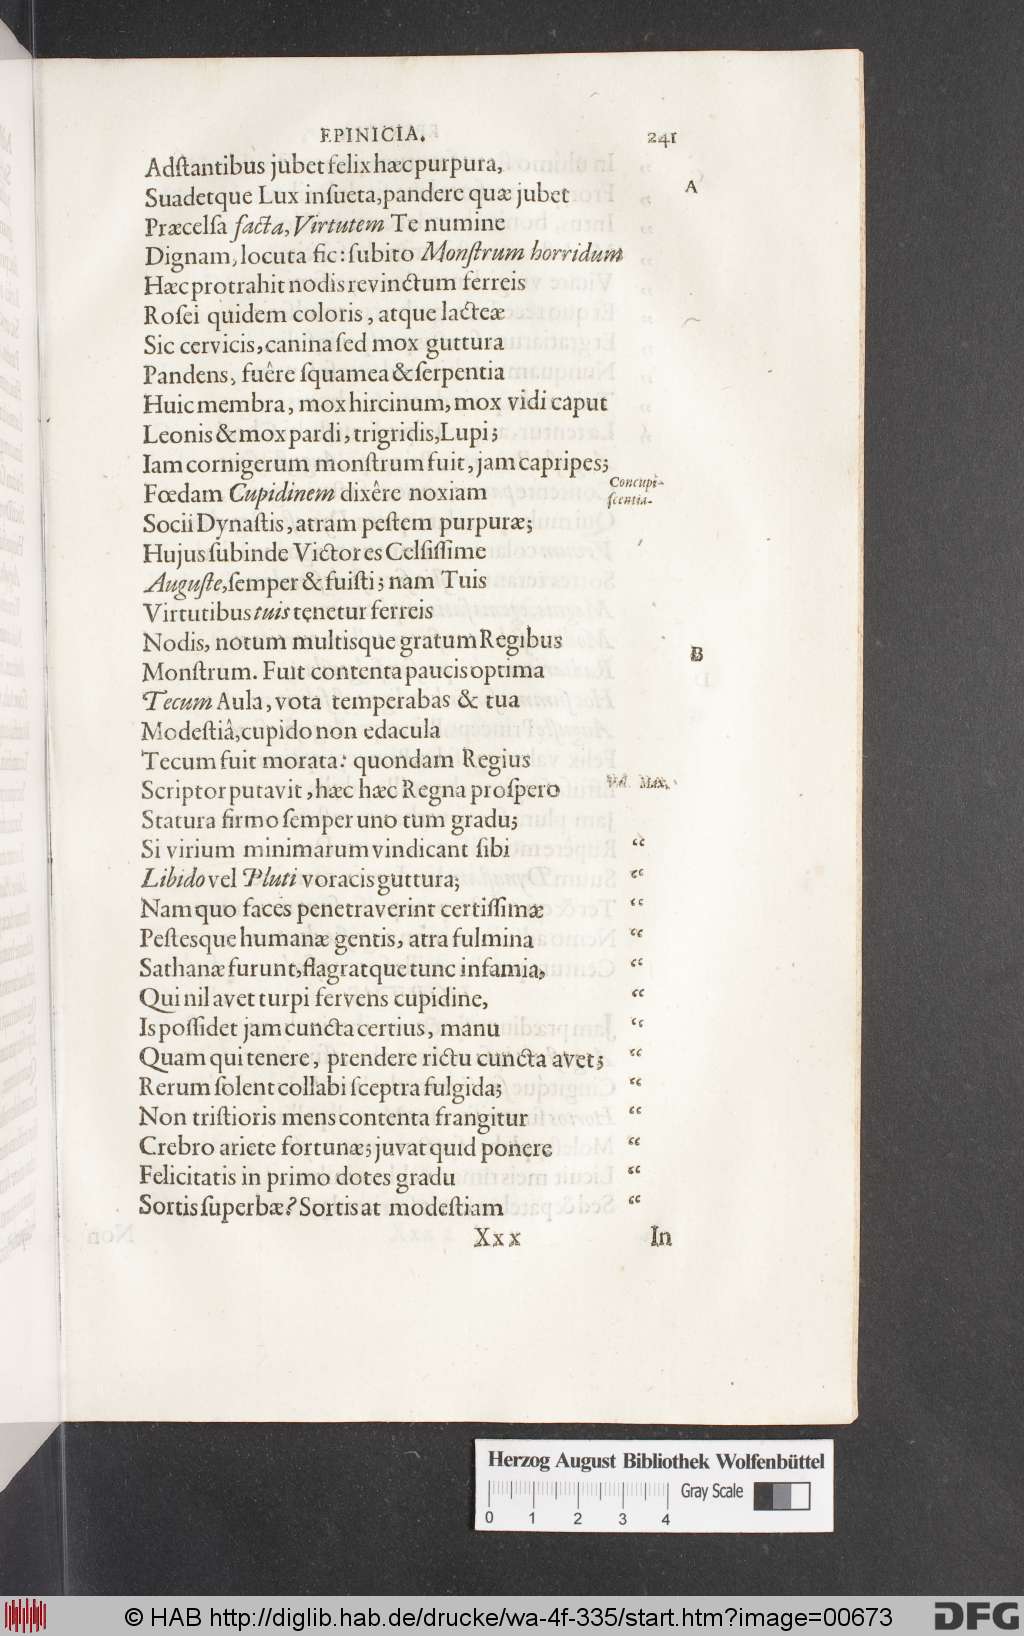 EPINICIA. 241
Adſtantibus jubet felix hæc purpura,
Suadetque Lux inſueta, pandere quæ jubet A
Præcelſa facta, Virtutem Te numine
Dignam, locuta ſic: ſubito Monſtrum horridum
Hæc protrahit nodis revinctum ferreis
Roſei quidem coloris, atque lacteæ
Sic cervicis, canina ſed mox guttura
Pandens, fuêre ſquamea & ſerpentia
Huic membra, mox hircinum, mox vidi caput
Leonis & mox pardi, trigridis, Lupi;
Iam cornigerum monſtrum fuit, jam capripes;
Fœdam Cupidinem dixêre noxiam Concupi-
ſcentia.
Socii Dynaſtis, atram peſtem purpuræ;
Hujus ſubinde Victor es Celſiſſime
Auguſte, ſemper & fuiſti; nam Tuis
Virtutibus tuis tenetur ferreis
Nodis, notum multisque gratum Regibus
Monſtrum. Fuit contenta paucis optima B
Tecum Aula, vota temperabas & tua
Modeſtiâ, cupido non edacula
Tecum fuit morata: quondam Regius
Scriptor putavit, hæc hæc Regna proſpero Val. Max.
Statura firmo ſemper uno tum gradu;
Si virium minimarum vindicant ſibi “
Libido vel Pluti voracis guttura; “
Nam quo faces penetraverint certiſſimæ “
Peſtesque humanæ gentis, atra fulmina “
Sathanæ furunt, flagratque tunc infamia, “
Qui nil avet turpi fervens cupidine, “
Is poſſidet jam cuncta certius, manu “
Quam qui tenere, prendere rictu cuncta avet; “
Rerum ſolent collabi ſceptra fulgida; “
Non triſtioris mens contenta frangitur “
Crebro ariete fortunæ; juvat quid ponere “
Felicitatis in primo dotes gradu “
Sortis ſuperbæ? Sortis at modeſtiam “
Xxx In
Herzog August Bibliothek Wolfenbüttel
Gray Scale
0 1 2 3 4
© HAB http://diglib.hab.de/drucke/wa-4f-335/start.htm?image=00673 DFG